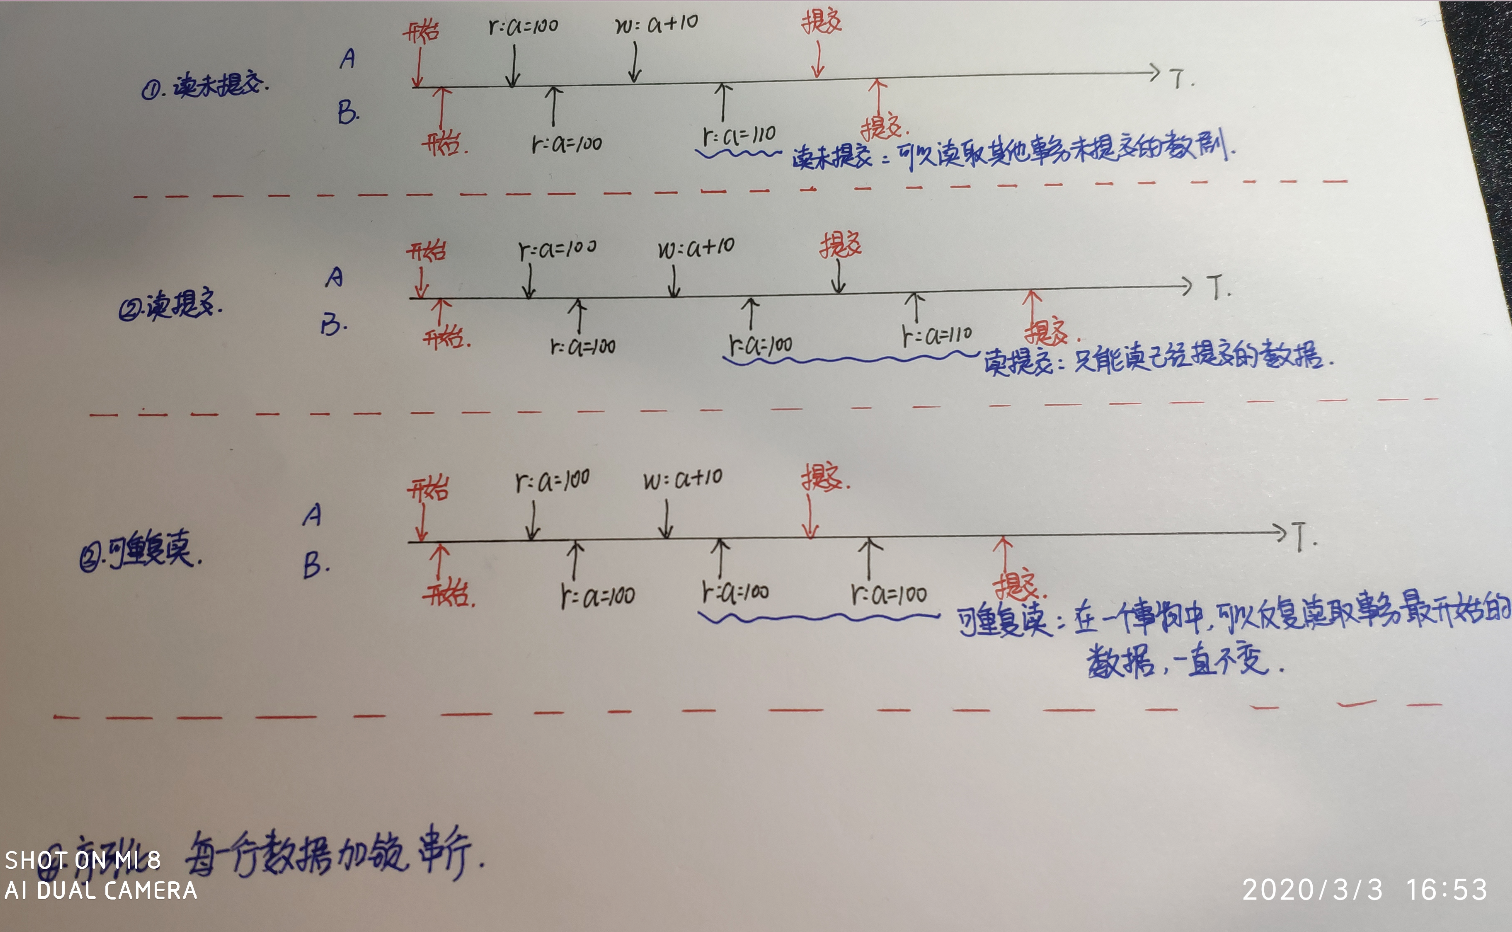 开始 r:a=100 w:a+10 提交
A
①.读未提交. T.
B.
开始. r:a=100 r:a=110 提交.
读未提交：可以读取其他事务未提交的数据.
开始 r:a=100 w:a+10 提交
A
②.读提交. T.
B.
开始. r:a=100 r:a=100 r:a=110 提交.
读提交：只能读已经提交的数据.
开始 r:a=100 w:a+10 提交.
A
③.可重复读. T.
B.
开始. r:a=100 r:a=100 r:a=100 提交.
可重复读：在一个事物中,可以反复读取事务最开始的
数据,一直不变.
④.序列化 每一行数据加锁 串行.
SHOT ON MI 8
AI DUAL CAMERA
2020/3/3 16:53